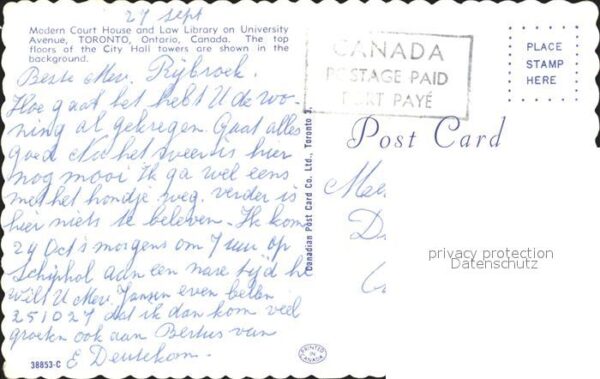 27 sept
Modern Court House and Law Library on University
Avenue, TORONTO, Ontario, Canada. The top
floors of the City Hall towers are shown in the
background.
CANADA
POSTAGE PAID
PORT PAYÉ
PLACE
STAMP
HERE
Post Card
Beste Mev. Rijbroek.
Hoe gaat het hebt U de wo-
ning al gekregen. Gaat alles
goed No het weer is hier
nog mooi Ik ga wel eens
met het hondje weg. verder is
hier niets te beleven. Ik kom
24 Oct 's morgens om 7 uur op
Schiphol aan een nare tijd hè
wilt U Mev. Jansen even bellen
251027 dat ik dan kom veel
groeten ook aan Bertus van
E Deutekom.
Canadian Post Card Co. Ltd., Toronto 3.
privacy protection
Datenschutz
38853-C
PRINTED IN CANADA